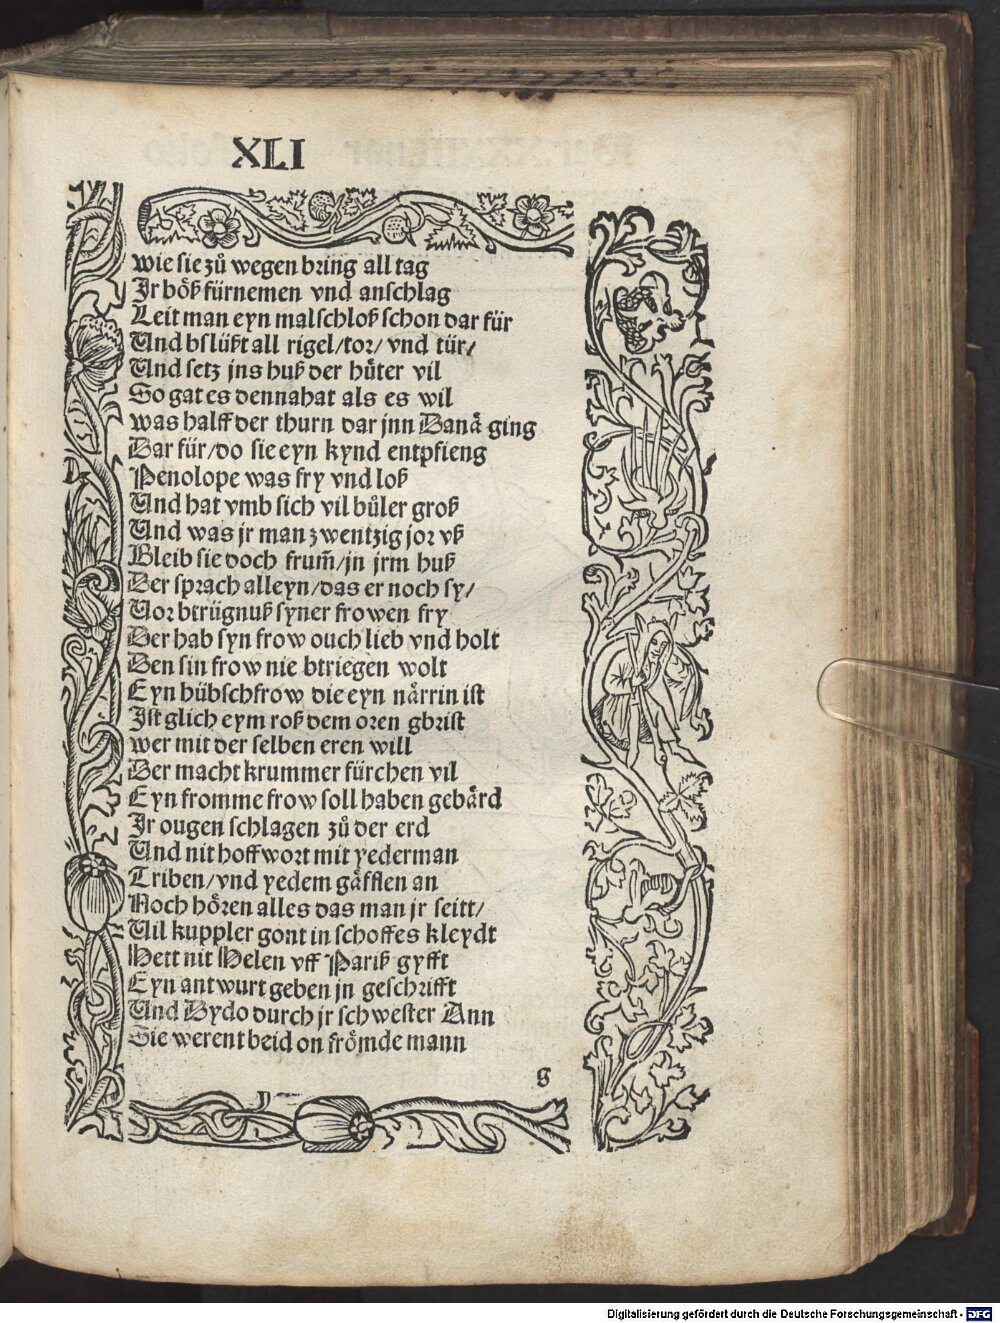 XLI
wie sie zů wegen bring all tag
Ir bo̊ß fürnemen vnd anschlag
Leit man eyn malschloß schon dar für
Vnd bslüßt all rigel/tor/ vnd tür/
Vnd setz jns huß der hu̎ter vil
So gat es dennaht als es wil
was halff der thurn dar jnn Danaͤ ging
Dar für/do sie eyn kynd entpfieng
Penolope was fry vnd loß
Vnd hat vmb sich vil bůler groß
Vnd was jr man zwentzig jor vß
Bleib sie doch frum̃/jn jrm huß
Der sprach alleyn/das er noch sy/
Vor btrügnuß syner frowen fry
Der hab syn frow ouch lieb vnd holt
Den sin frow nie btriegen wolt
Eyn hübsch frow die eyn naͤrrin ist
Ist glich eym roß dem oren gbrist
wer mit der selben eren will
Der macht krummer fürchen vil
Eyn fromme frow soll haben gebaͤrd
Ir ougen schlagen zů der erd
Vnd nit hoffwort mit yederman
Triben/vnd yedem gaͤfflen an
Noch hoͤren alles das man jr seitt/
Vil kuppler gont in schoffes kleydt
Hett nit Helen vff Pariß gyfft
Eyn antwurt geben jn geschrifft
Vnd Dydo durch jr schwester Ann
Sie werent beid on froͤmde mann
g
Digitalisierung gefördert durch die Deutsche Forschungsgemeinschaft - DFG